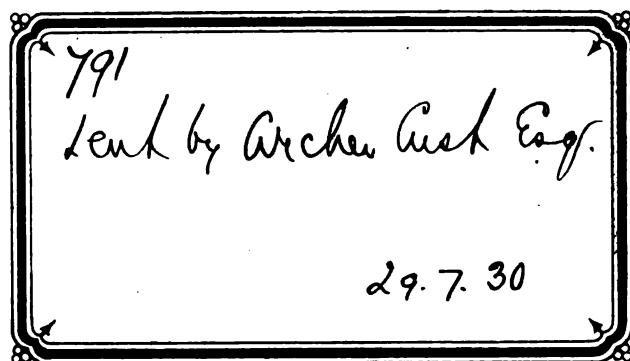 791
Lent by Archer Cust Esq.
29.7.30